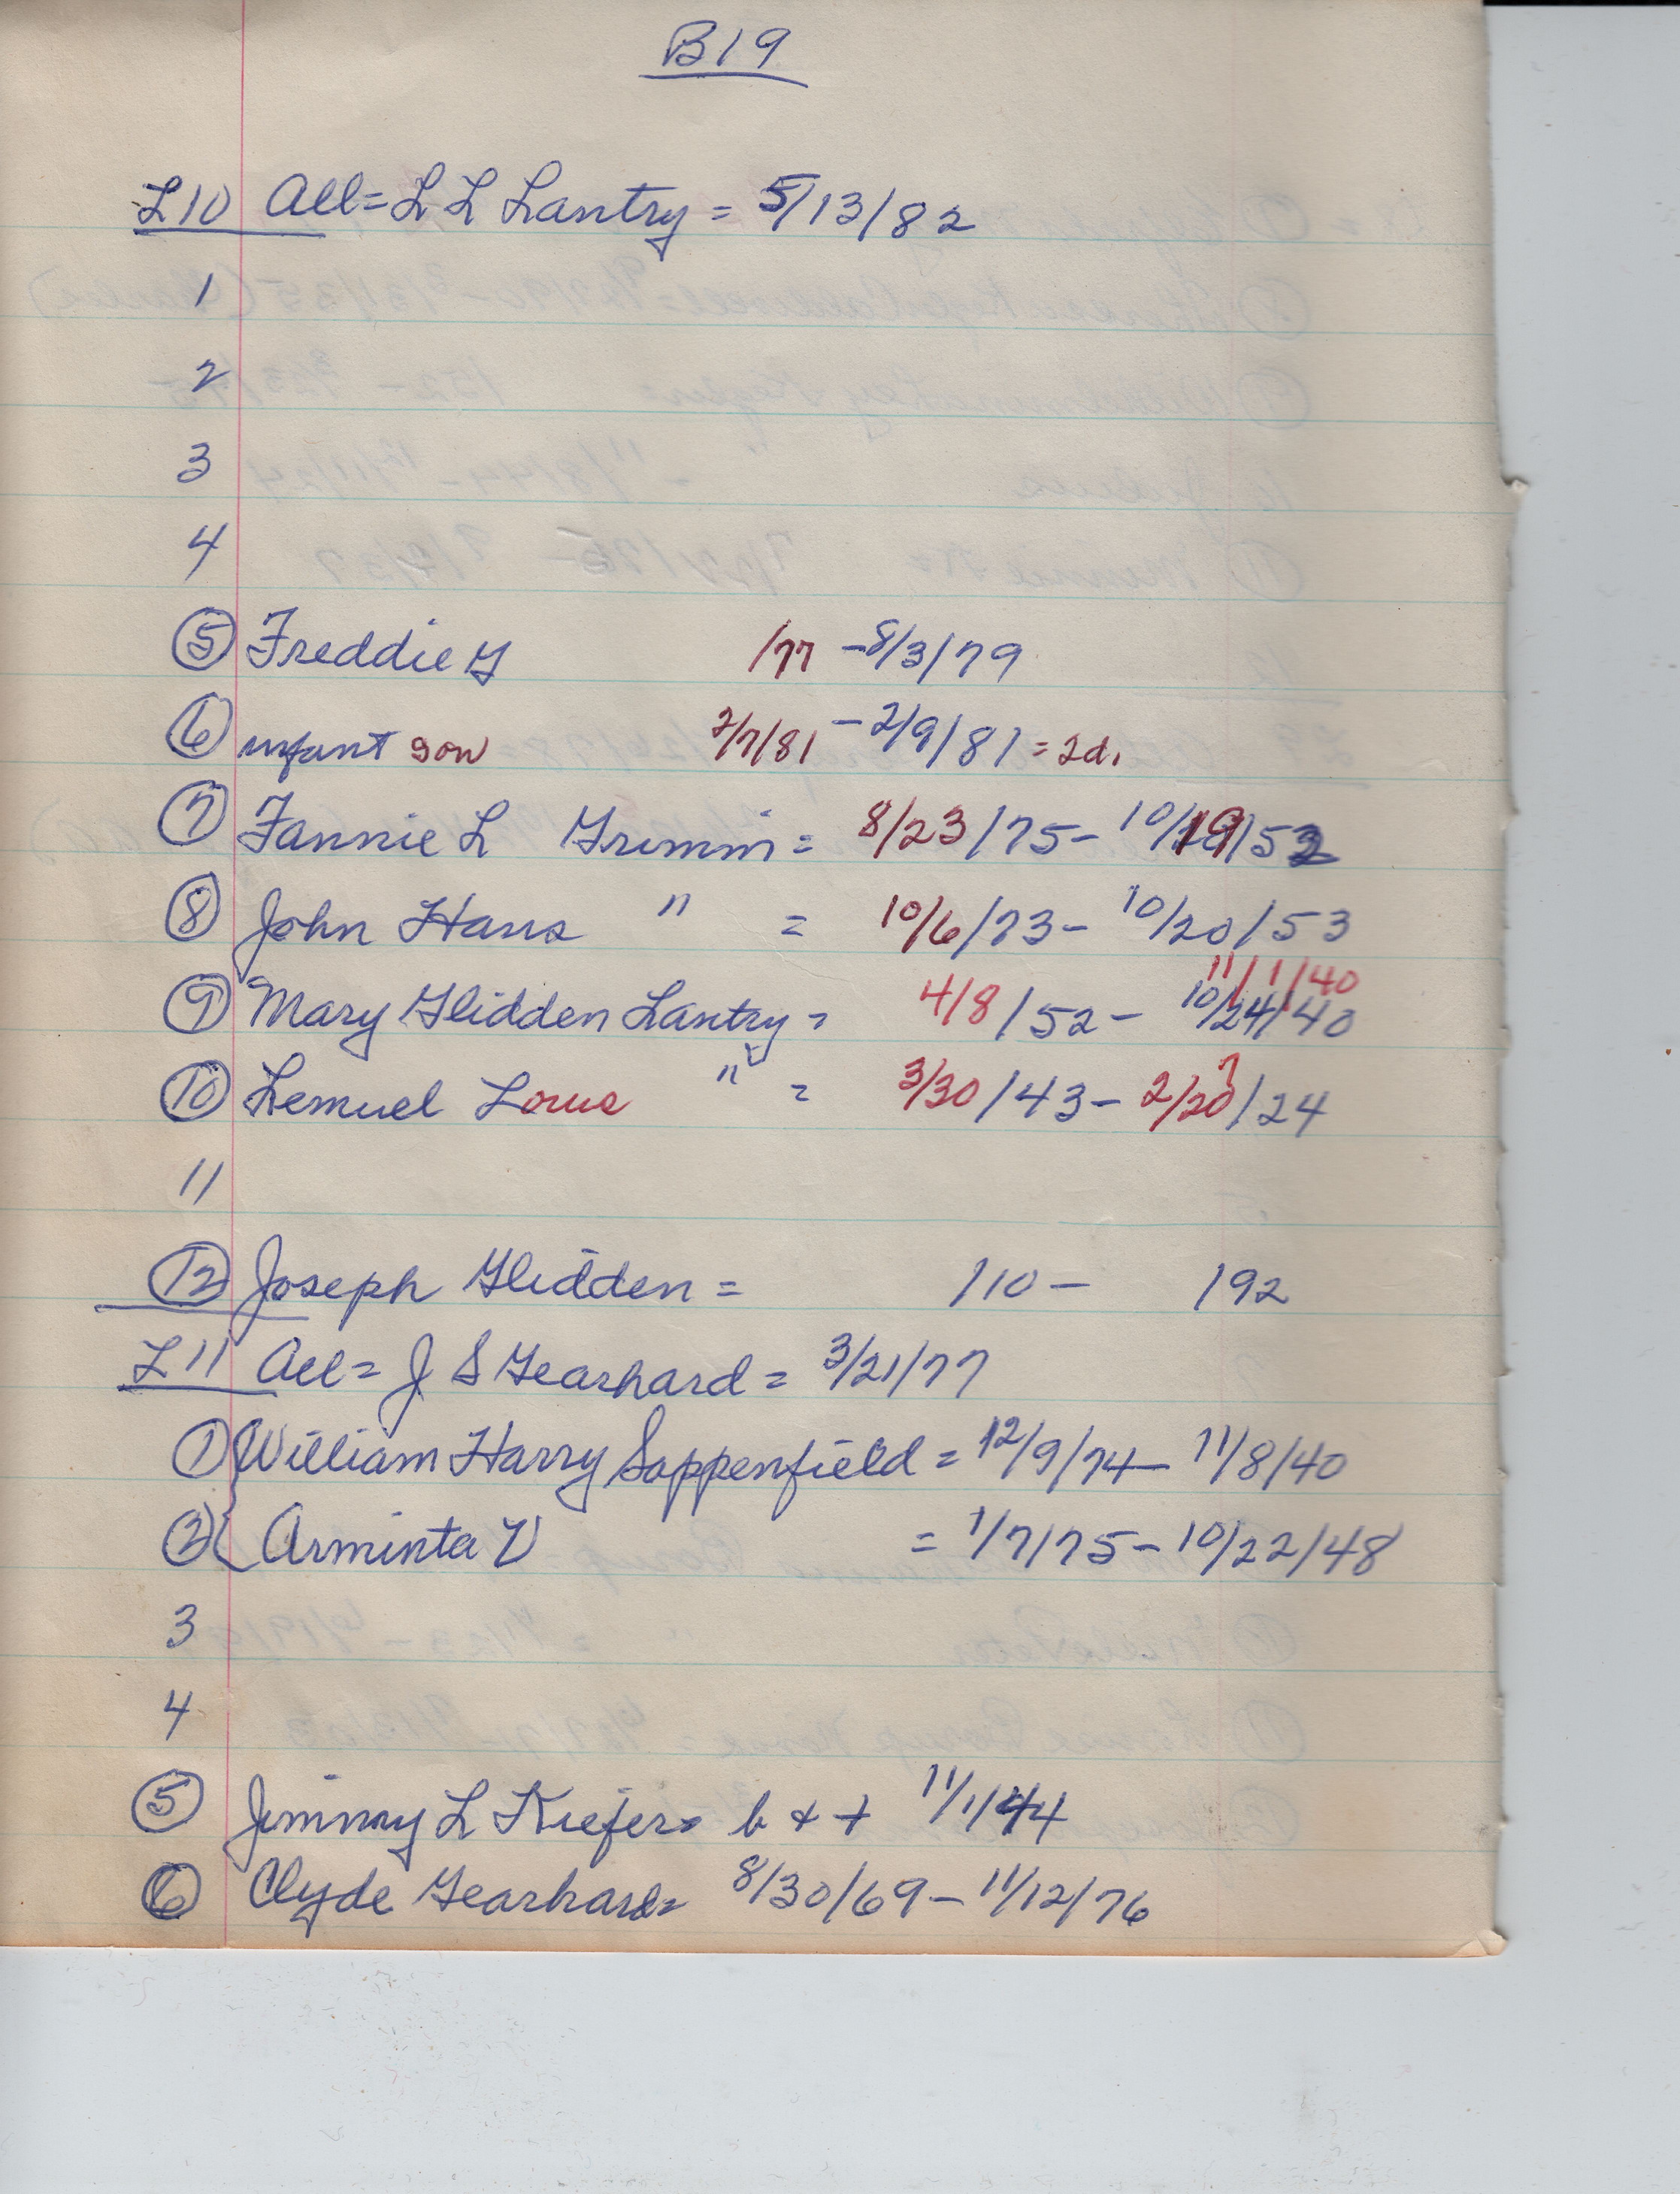 B19
L10 All = L L Lantry = 5/13/82
1
2
3
4
5 Freddie G /77 - 8/3/79
6 infant son 2/7/81 - 2/9/81 = 2d.
7 Fannie L Grimm = 8/23/75 - 10/19/52
8 John Hans " = 10/6/73 - 10/20/53
11/1/40
9 Mary Glidden Lantry = 4/8/52 - 10/24/40
10 Lemuel Louis " = 3/30/43 - 2/20?/24
11
12 Joseph Glidden = /10 - /92
L11 All = J S Gearhard = 3/21/77
1 William Harry Sappenfield = 12/9/74 - 11/8/40
2 Arminta V = 1/7/75 - 10/22/48
3
4
5 Jimmy L Kiefer = b + + 11/1/44
6 Clyde Gearhard = 8/30/69 - 11/12/76